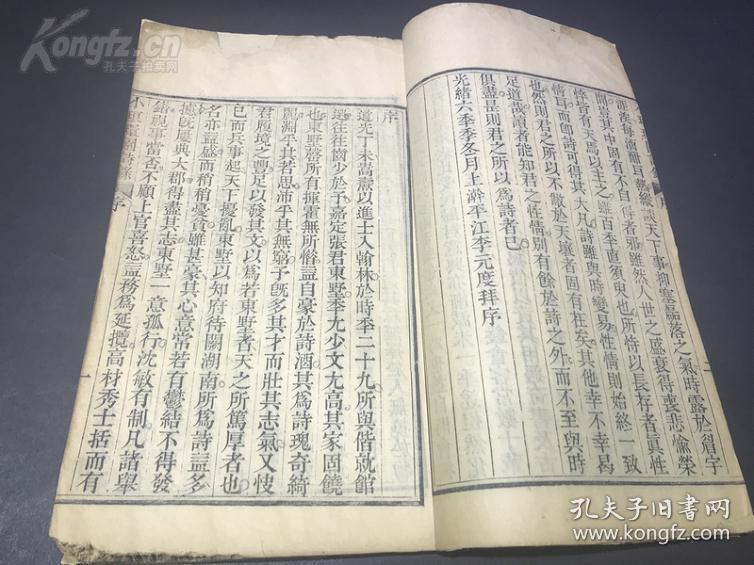 淋漓每酒酣耳熱縱談天下事抑塞磊落之氣時露於眉宇
閒意其中固有不自得者邪雖然人世之盛衰得喪悲愉榮
悴皆有天焉以主之雖百季直須臾也所恃以長存者眞性
情耳而卽詩可得其大凡詩雖與時變易性情則始終一致
也然則君之所以不敝於天壤者固有在矣其他幸不幸曷
足道哉讀者能知君之性情別有餘於詩之外而不至與時
俱盡是則君之所以爲詩者已
光緒六季季冬月上澣平江李元度拜序
二
序
道光丁未嵩燾以進士入翰林於時季二十九所與偕就館
選往往齒少於予嘉定張君東墅季尤少文尤高其家固饒
也東墅磬所有揮霍無所惜益自豪於詩酒其爲詩瑰奇綺
麗淵乎其若思沛乎其無窮予旣多其才而壯其志氣又忮
君履境之豐足以發其文以爲若東墅者天之所篤厚者也
已而兵事起天下擾亂東墅以知府待闕湖南所爲詩益多
名亦益盛而稍稍憂貧雖甚豪其心意常若有鬱結不得發
攄旣歷典大郡得盡其志東墅一意孤行沈敏有制凡諸舉
錯視事當否不顧上官喜怒益務爲延攬高材秀士括而有
序
一
Kongfz.cn
孔夫子拍卖网
孔夫子旧书网
www.kongfz.com